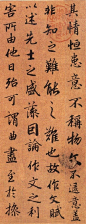 其情恒患意不稱物文不逮意蓋
非知之難能之難也故作文賦
以述先士之盛藻因論作文之利
害所由他日殆可謂曲盡至於操